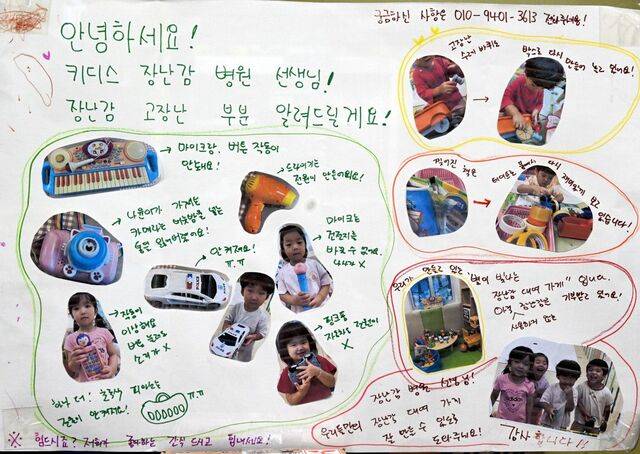 궁금하신 사항은 010-9401-3613 전화주세요!
안녕하세요!
키디스 장난감 병원 선생님!
장난감 고장난 부분 알려드릴게요!
마이크랑, 버튼 작동이
안돼요!
드라이기는
전원이 안들어와요!
카메라는 버튼만
안 켜져요!
ㅠ.ㅠ
마이크는
건전지를
바꿀 수 없어요.
나사가 X
작동이
이상해요
버튼 눌러도
소리가 X
핑크폰
자체로 전원이
X
하나 더!
피아노는
전원이 안켜져요!
ㅠ.ㅠ
※ 힘드시죠? 저희가 좋아하는 간식 드시고 힘내세요!
고장난
수레 바퀴는
박스로 다시
만들어 놀고 있어요!
찢어진 책은
테이프로 붙여서 다시
재밌게 읽고
있습니다!
우리가 만들고 있는 "별이 빛나는
장난감 대여 가게" 입니다.
아직
장난감은
기부받고 있어요!
사용하지 않는
장난감 병원 선생님!
우리들만의 장난감 대여 가게
잘 만들 수 있도록
도와주세요!
감사합니다!!